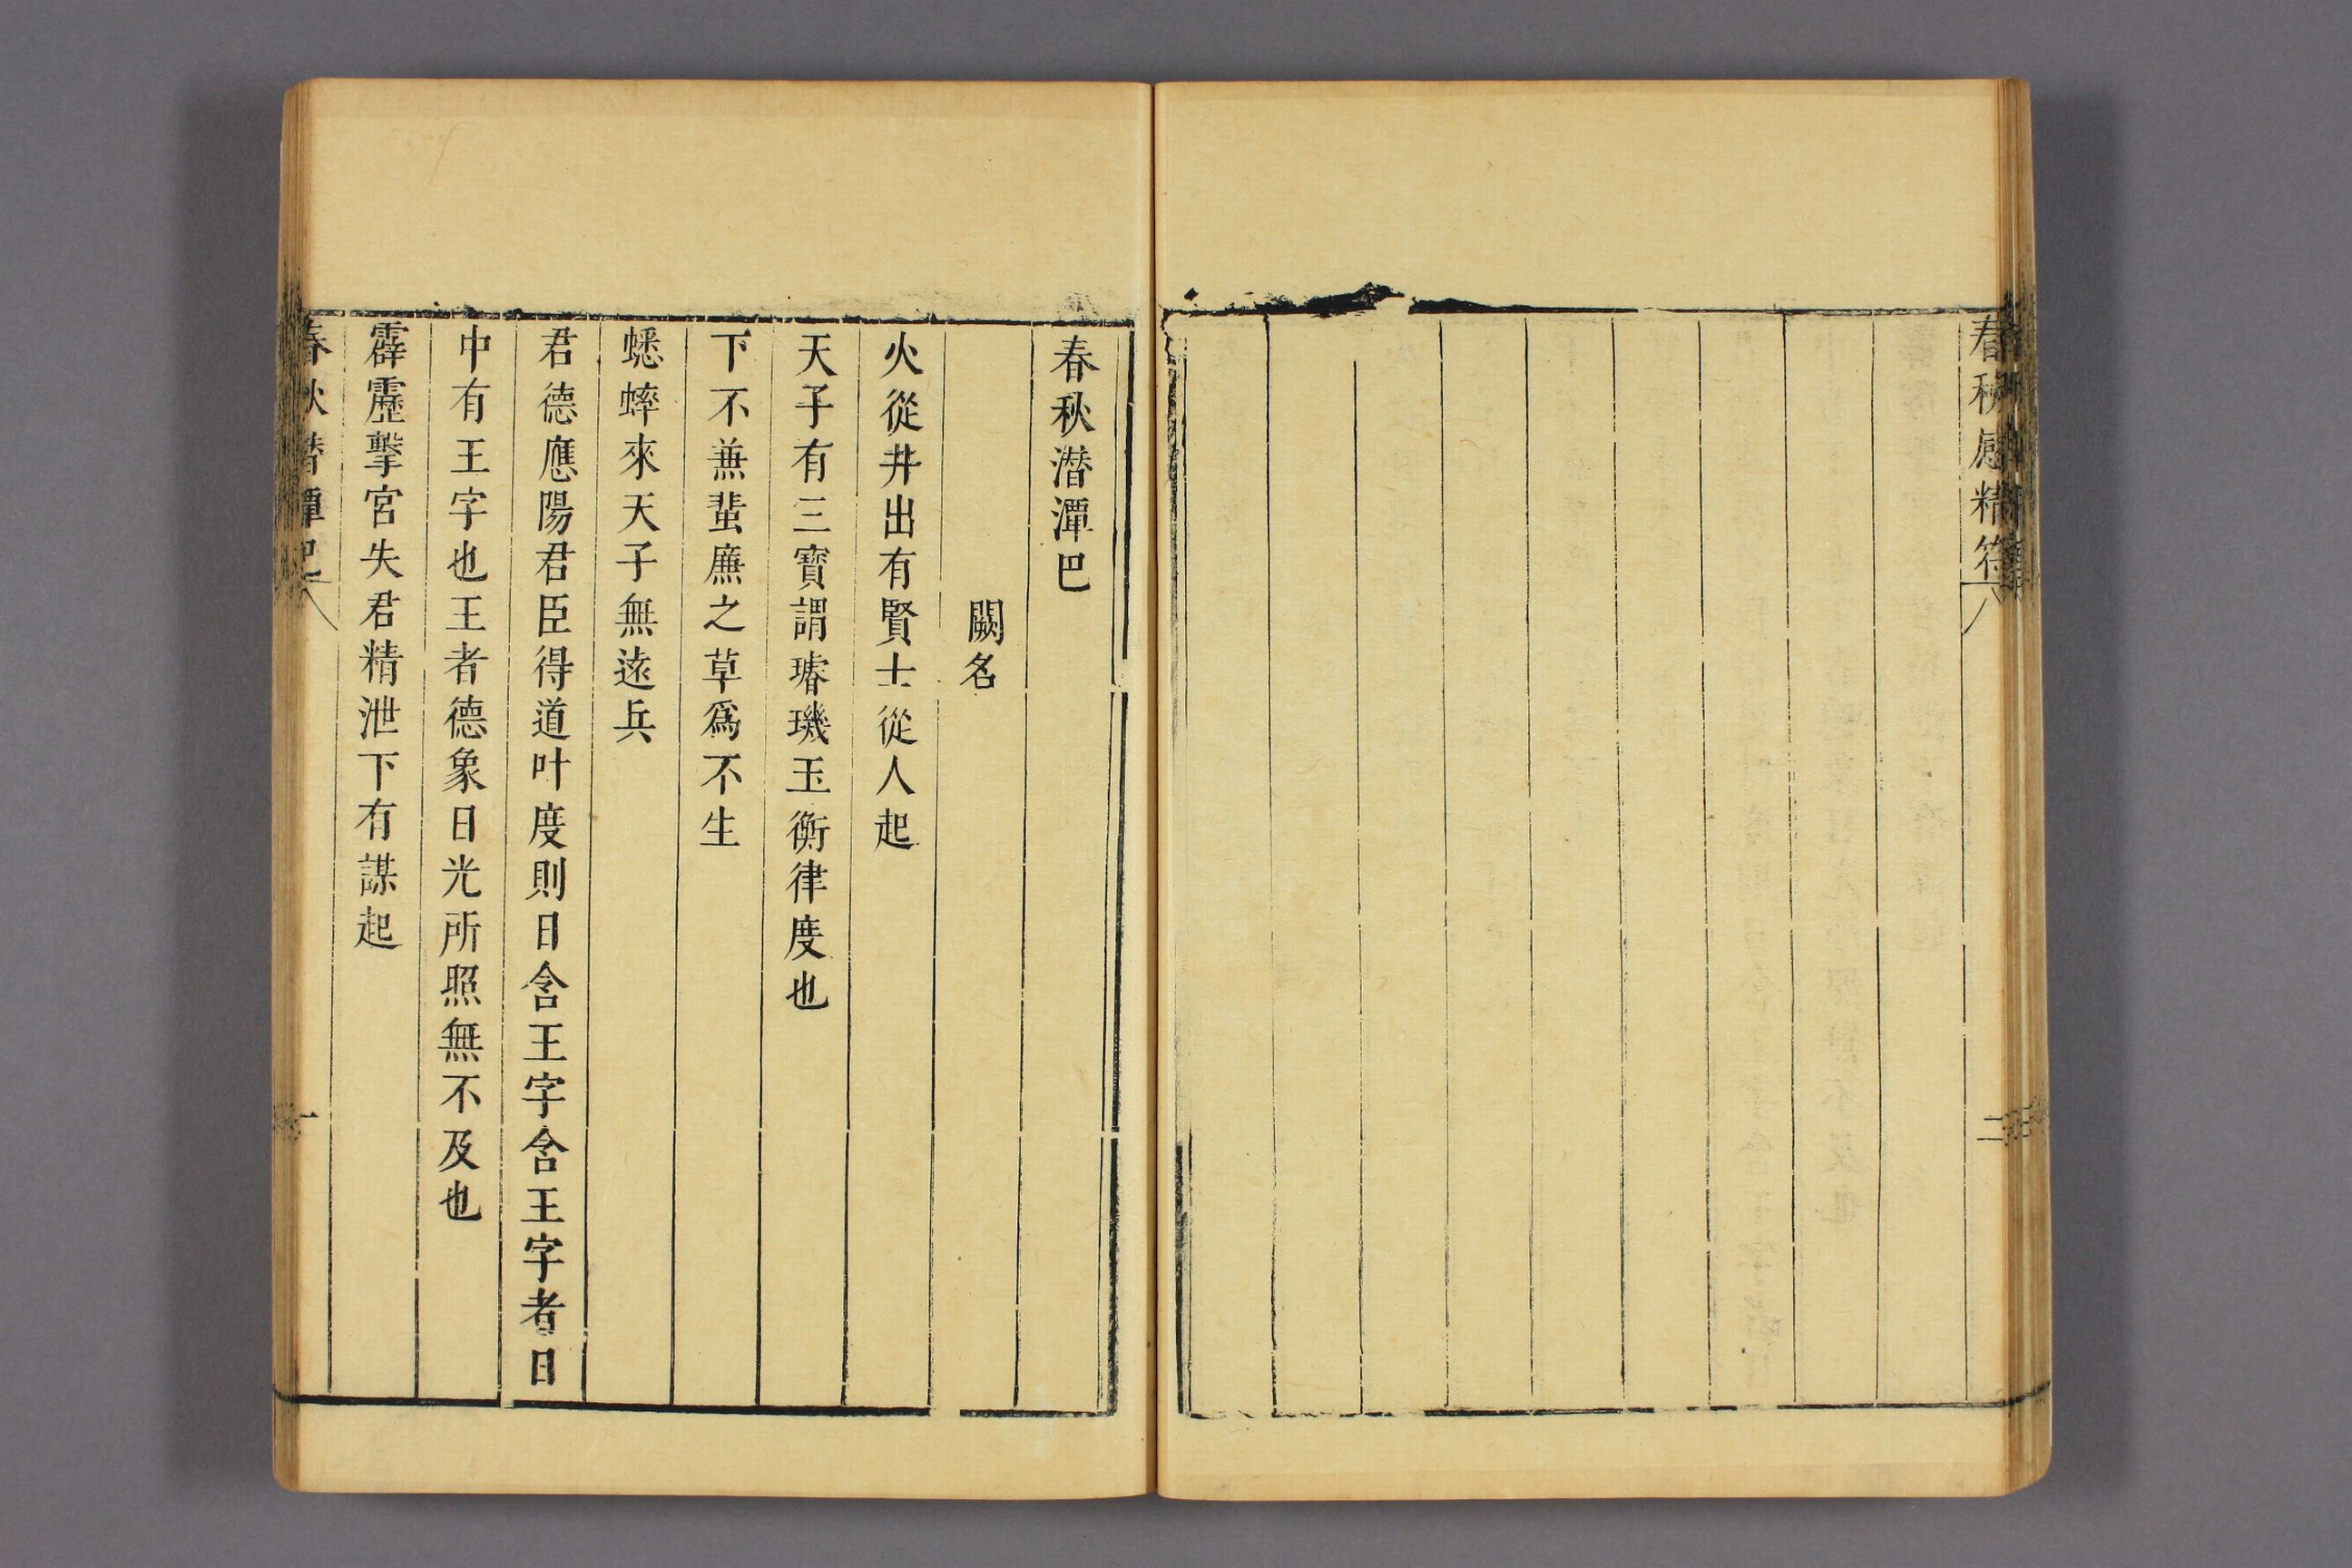 春秋感精符
二
春秋潛潭巴
闕名
火從井出有賢士從人起
天子有三寶謂璿璣玉衡律度也
下不兼蜚廉之草爲不生
蟋蟀來天子無遠兵
君德應陽君臣得道叶度則日含王字含王字者日
中有王字也王者德象日光所照無不及也
霹靂擊宮失君精泄下有謀起
春秋潛潭巴
一